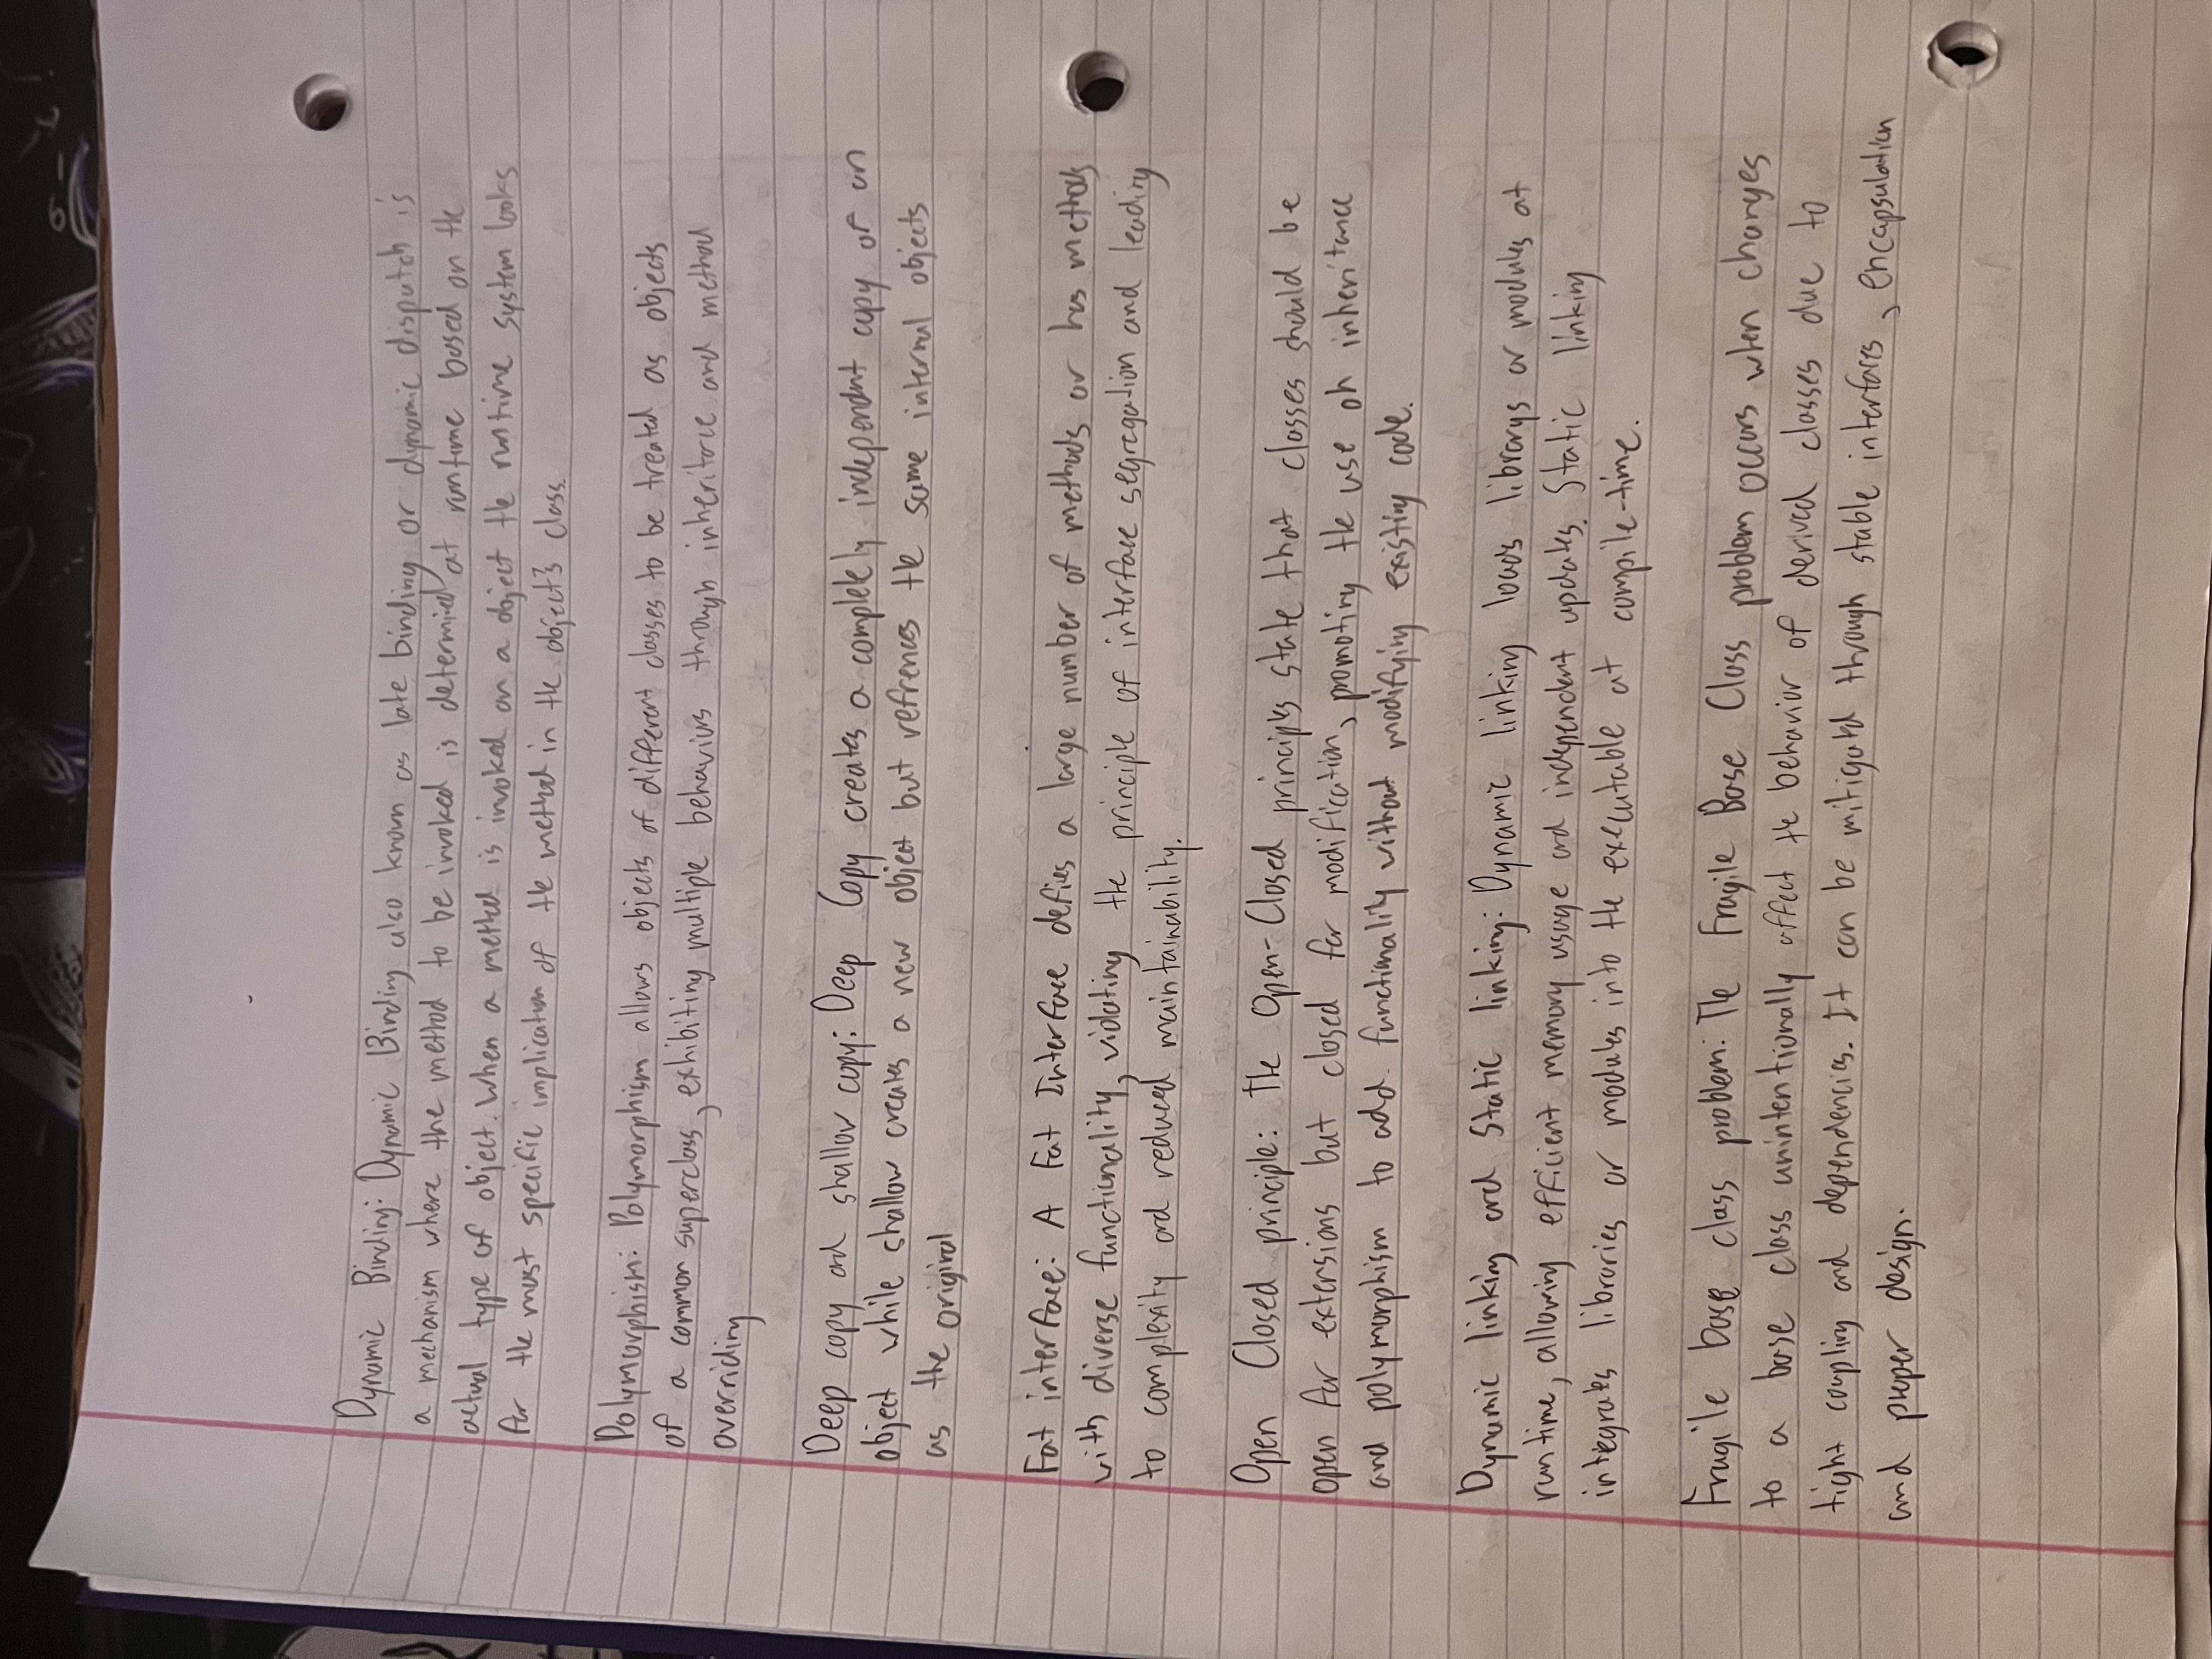 Dynamic Binding: Dynamic Binding also known as late binding or dynamic dispatch is
a mechanism where the method to be invoked is determined at runtime based on the
actual type of object. When a method is invoked on a object the runtime system looks
for the most specific implication of the method in the object's class.
Polymorphism: Polymorphism allows objects of different classes to be treated as objects
of a common superclass, exhibiting multiple behaviors through inheritance and method
overriding
Deep copy and shallow copy: Deep Copy creates a completely independent copy of an
object while shallow creates a new object but refrences the same internal objects
as the original
Fat interface: A Fat Interface defies a large number of methods or has methods
with diverse functionality, violating the principle of interface segregation and leading
to complexity and reduced maintainability.
Open Closed principle: The Open-Closed principles state that classes should be
open for extensions but closed for modification, promoting the use oh inheritance
and polymorphism to add functionality without modifying existing code.
Dynamic linking and Static linking: Dynamic linking loads librarys or modules at
runtime, allowing efficient memory usage and independent updates. Static linking
integrates libraries or modules into the executable at compile-time.
Fragile base class problem: The Fragile Base Class problem occurs when changes
to a base class unintentionally affect the behavior of derived classes due to
tight coupling and dependencies. It can be mitigated through stable interfaces, encapsulation
and proper design.